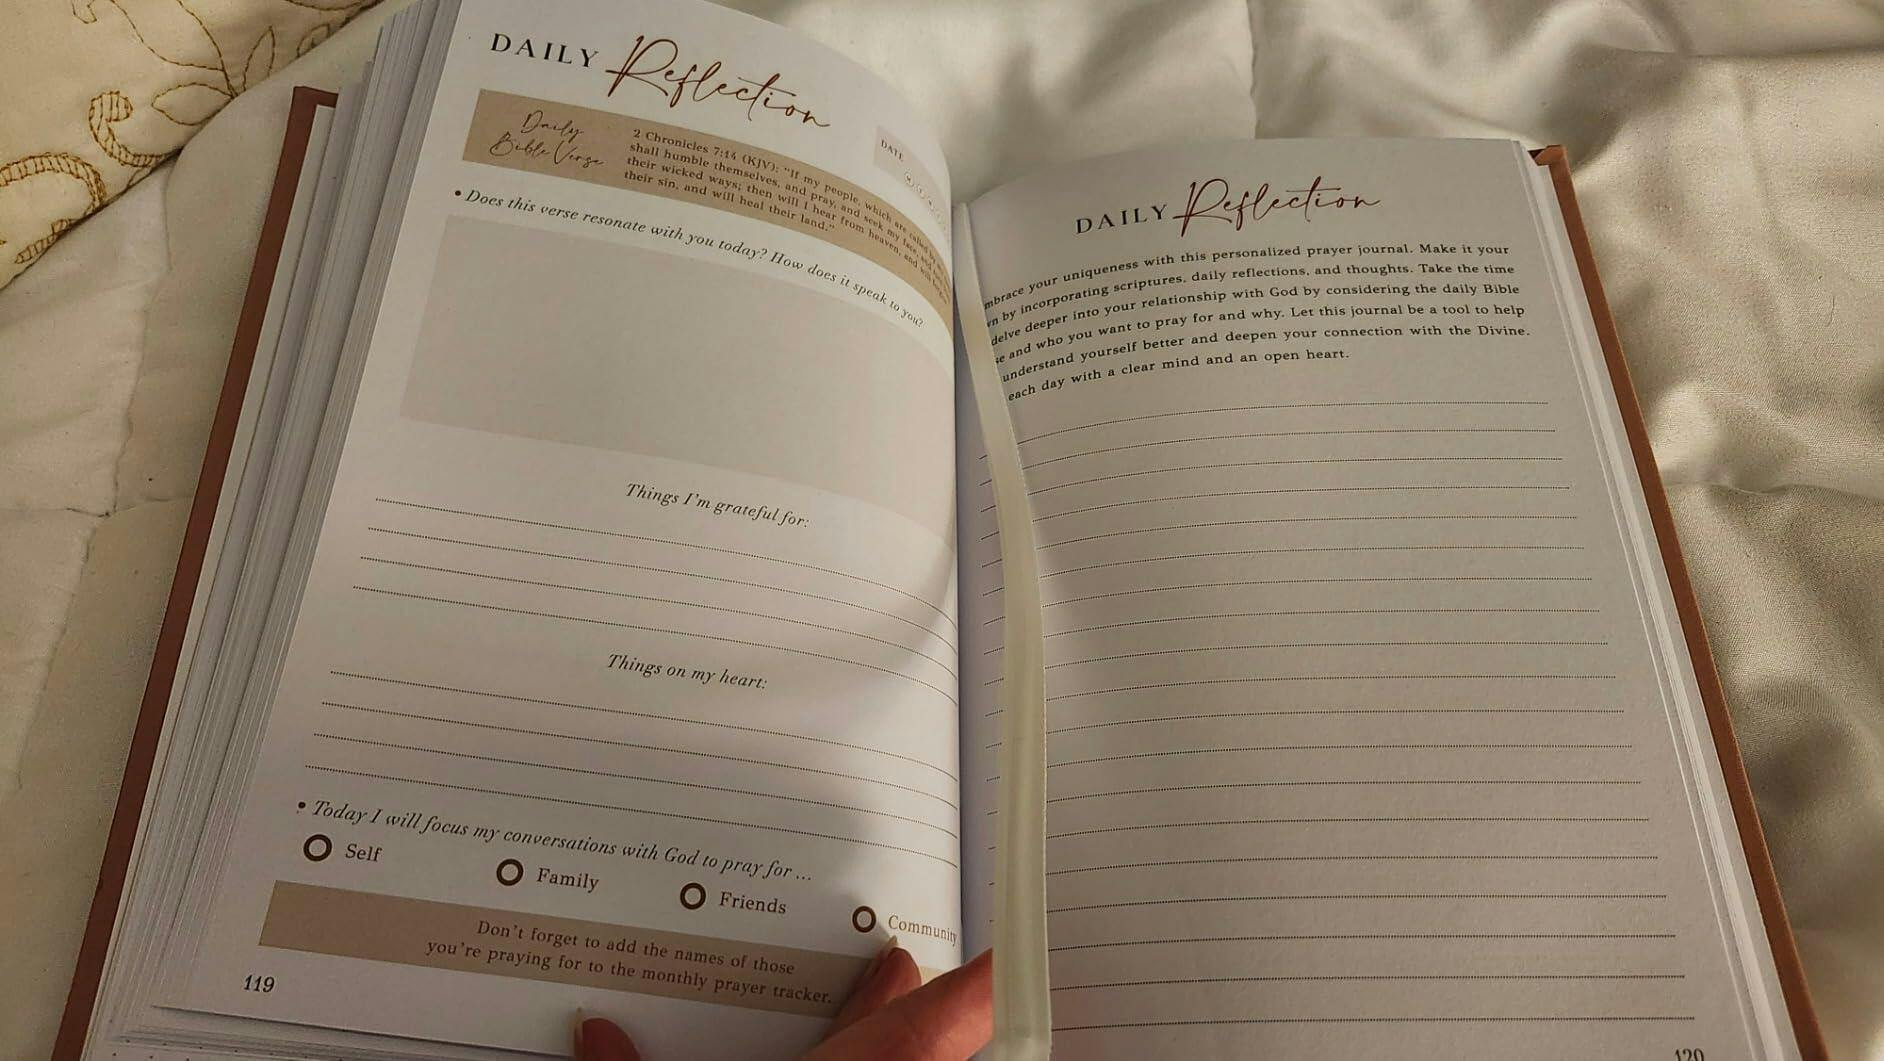 DAILY Reflection
Daily
Bible Verse
2 Chronicles 7:14 (KJV): "If my people, which are called
shall humble themselves, and pray, and seek my face, and
their wicked ways; then will I hear from heaven, and will forgive
their sin, and will heal their land."
DATE
• Does this verse resonate with you today? How does it speak to you?
Things I'm grateful for:
Things on my heart:
• Today I will focus my conversations with God to pray for ...
Self
Family
Friends
Community
Don't forget to add the names of those
you're praying for to the monthly prayer tracker.
119
DAILY Reflection
mbrace your uniqueness with this personalized prayer journal. Make it your
wn by incorporating scriptures, daily reflections, and thoughts. Take the time
delve deeper into your relationship with God by considering the daily Bible
se and who you want to pray for and why. Let this journal be a tool to help
understand yourself better and deepen your connection with the Divine.
each day with a clear mind and an open heart.
120